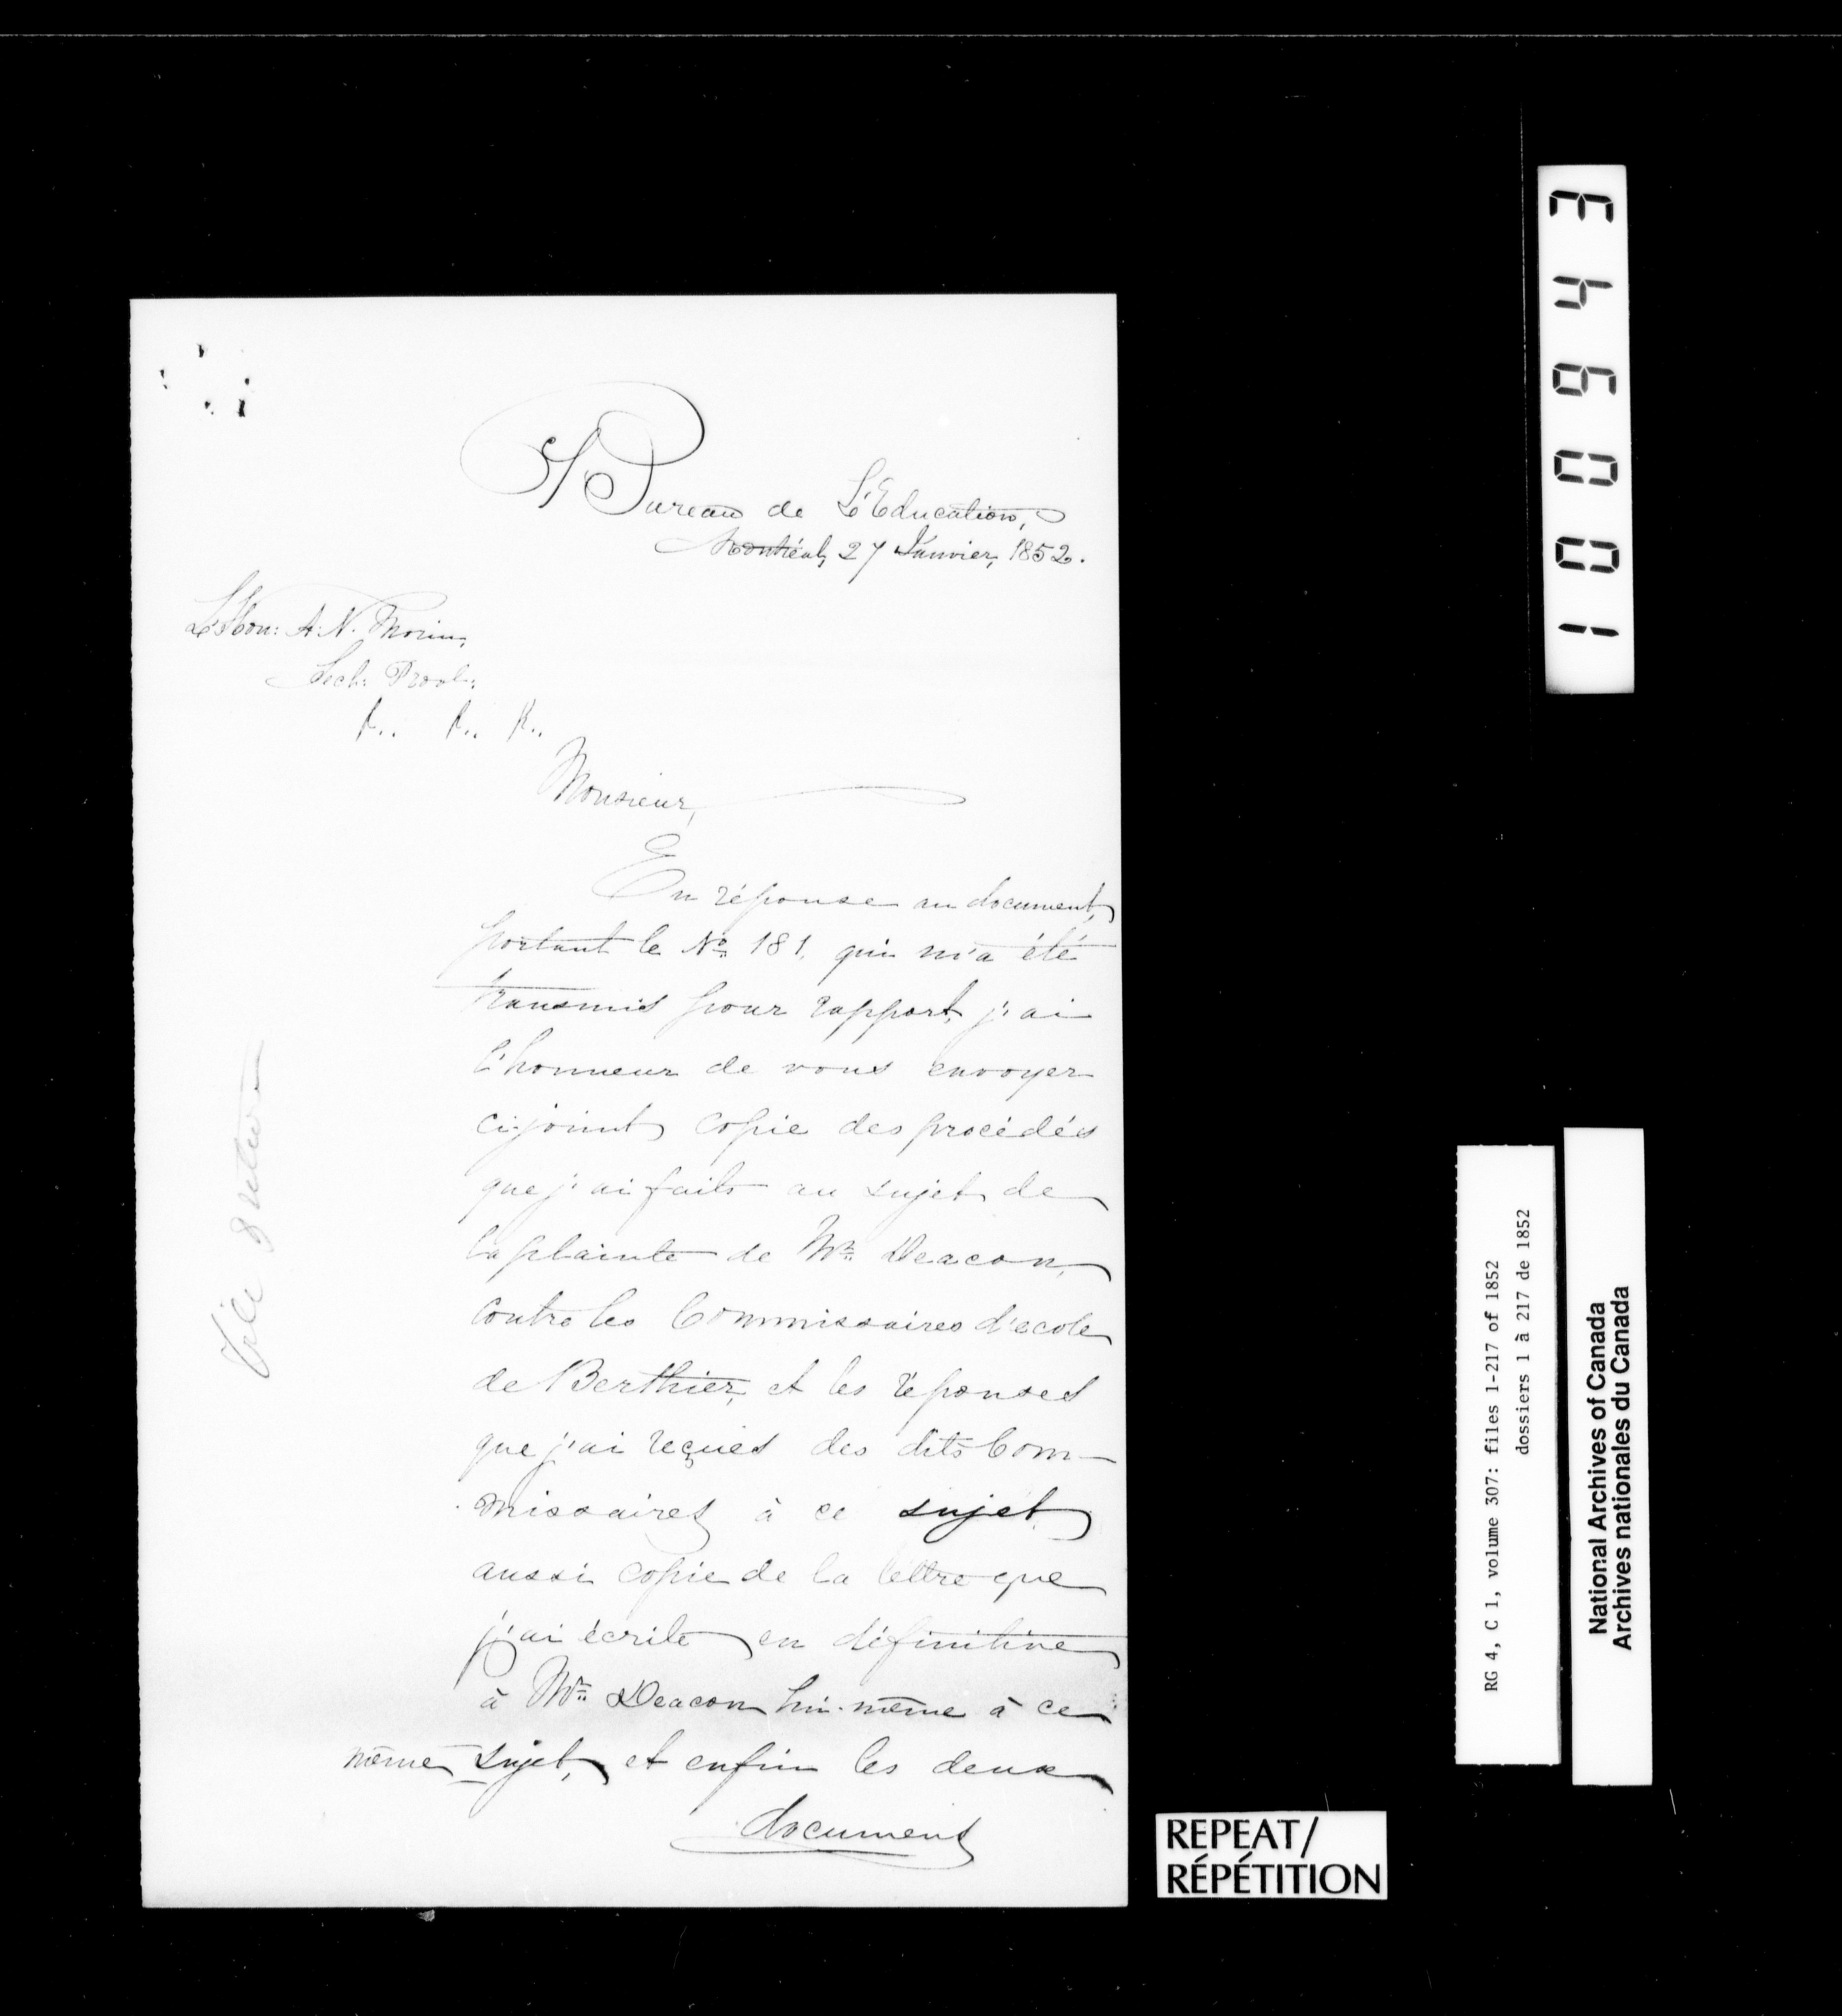 Bureau de L'Education,
Montréal, 27 Janvier, 1852.
L'Hon: A. N. Morin,
Sech: Provl:
Monsieur,
En réponse au document,
portant le No. 181, qui m'a été
transmis pour rapport, j'ai
l'honneur de vous envoyer
ci-joint copie des procédés
que j'ai faits au sujet de
la plainte de Mr. Deacon,
contre les Commissaires d'école
de Berthier, et les réponses
que j'ai reçues des dits Com-
missaires à ce sujet,
aussi copie de la lettre que
j'ai écrite en définitive
à Mr. Deacon lui-même à ce
même sujet, et enfin les deux
documens
File
REPEAT/
RÉPÉTITION
100943
RG 4, C 1, volume 307: files 1-217 of 1852
dossiers 1 à 217 de 1852
National Archives of Canada
Archives nationales du Canada